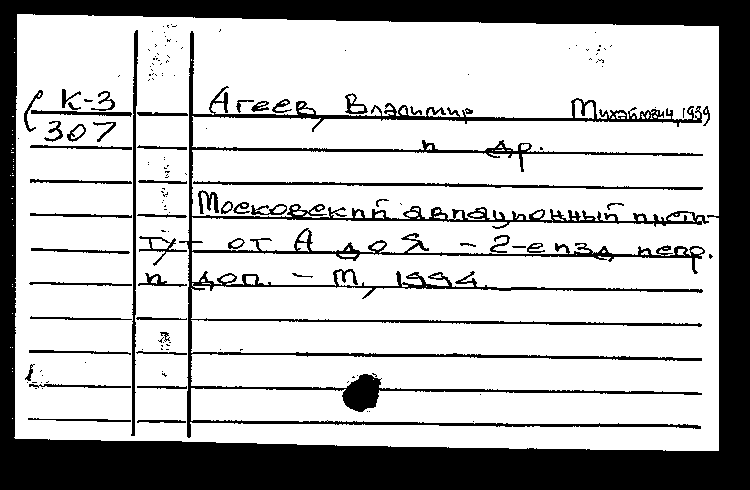 К-3 Агеев, Владимир Михайлович, 1939
307 и др.
Московский авиационный инсти-
тут от А до Я - 2-е изд. испр.
и доп. - М, 1994.